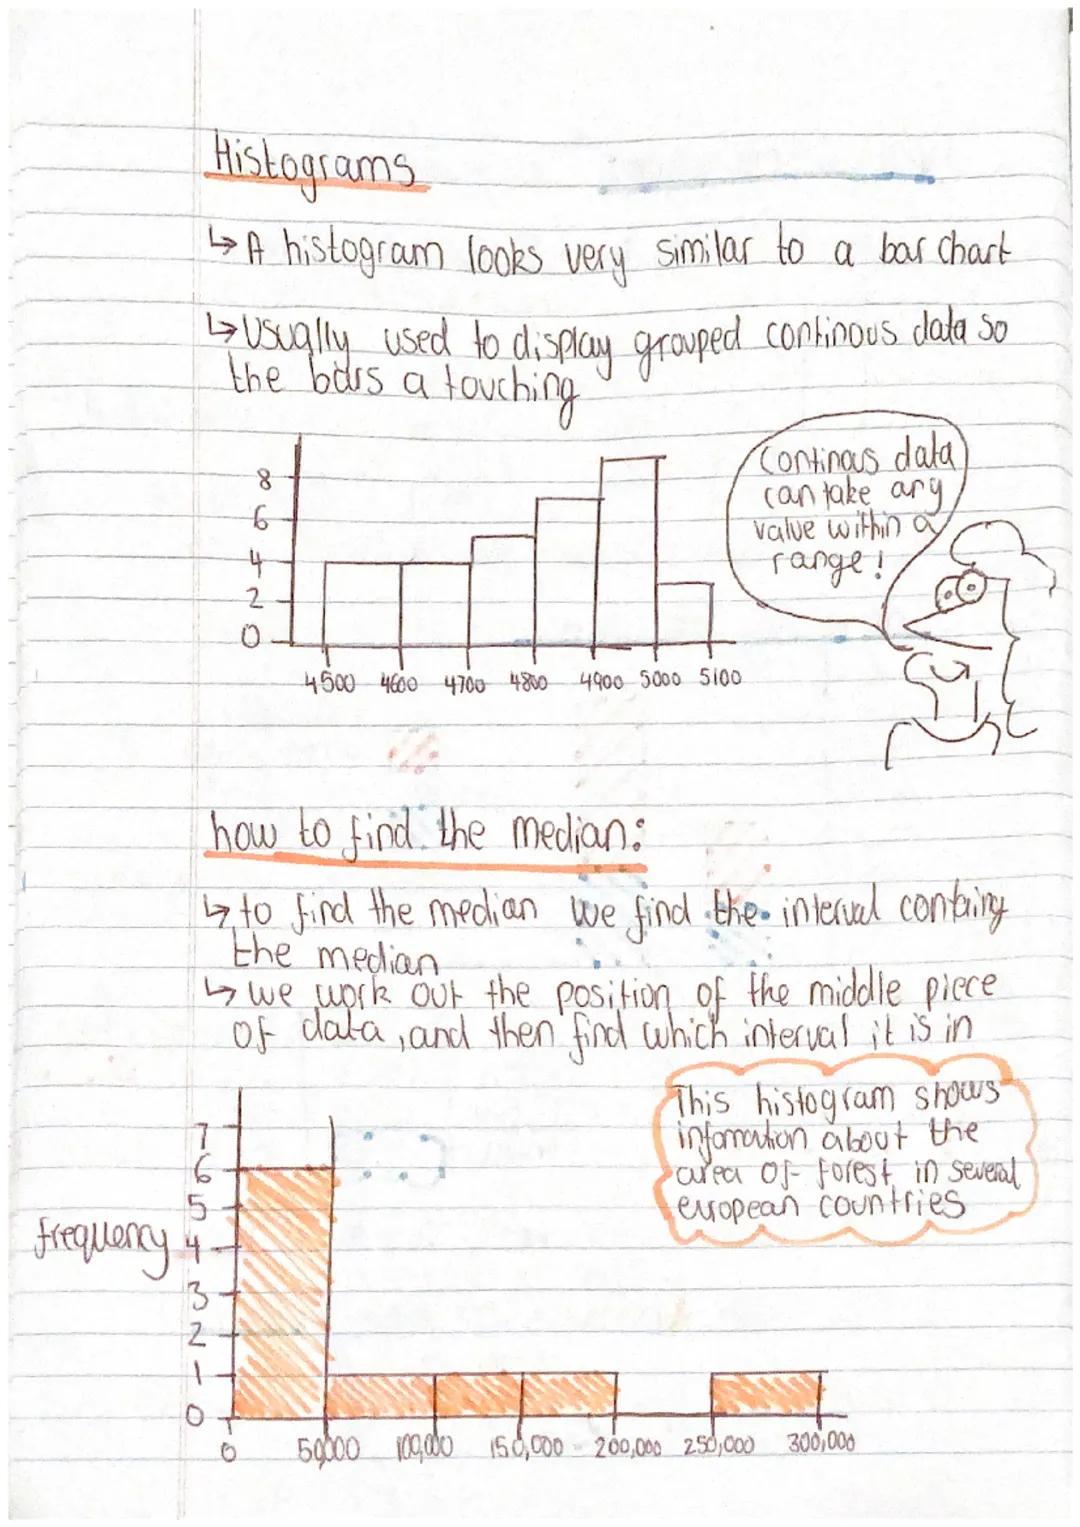 Histograms
↳ A histogram looks very similar to a bar chart
↳ Usually used to display grouped continous data so
the bars a touching
8
6
4
2
0
4500 4600 4700 4800 4900 5000 5100
Continous data
can take any
value within a
range!
how to find the median:
↳ to find the median we find the interval containg
the median
↳ we work out the position of the middle piece
of data, and then find which interval it is in
This histogram shows
infomation about the
area of forest in several
european countries
frequency
7
6
5
4
3
2
1
0
0 50,000 100,000 150,000 200,000 250,000 300,000